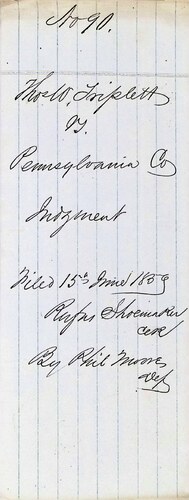 No 90.
Thos W. Triplett
Vs.
Pennsylvania Co
Judgment
Filed 15th June 1859
Rufus Shoemaker
Clk
By Phil Moore
Dep